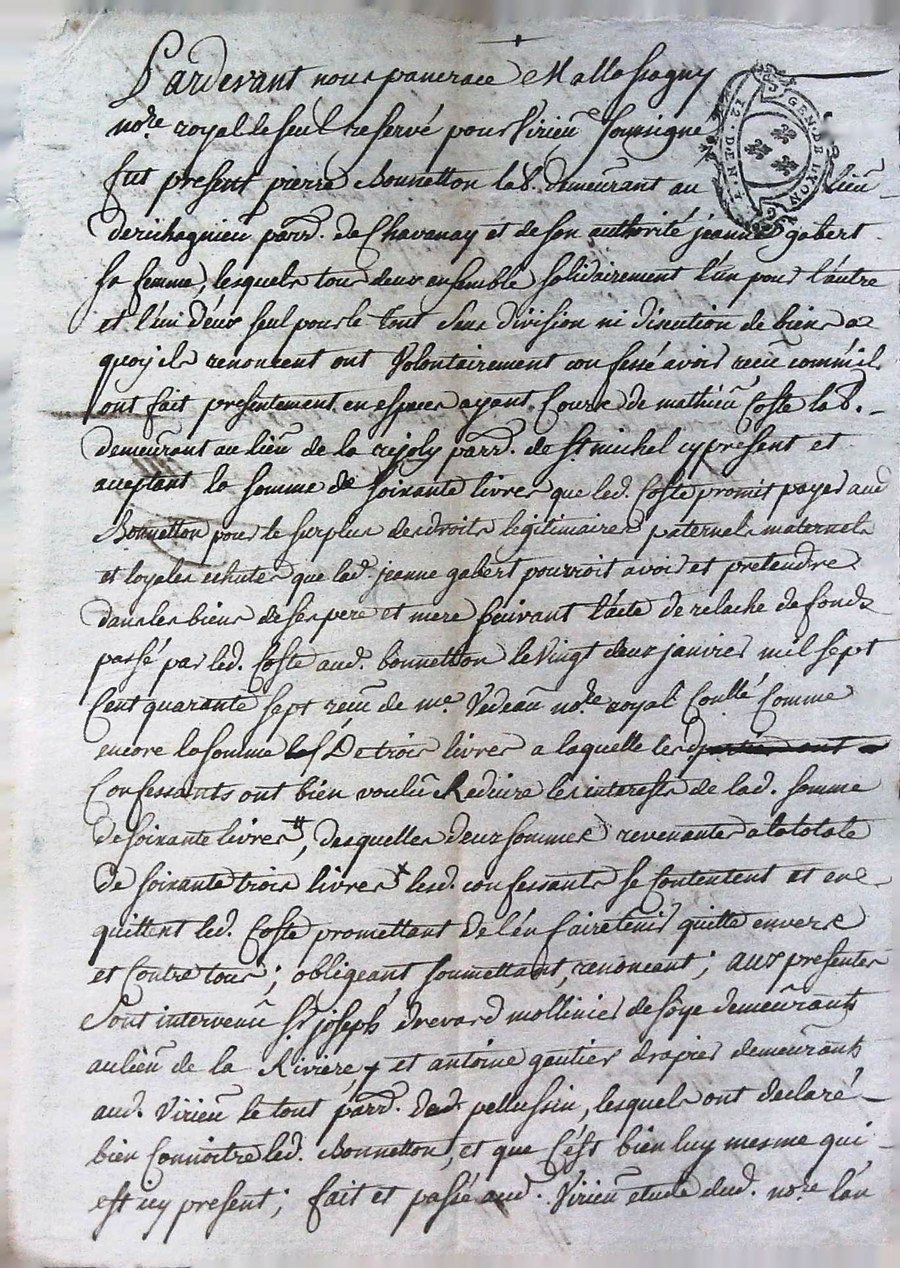 Pardevant nous pancrace Mallassagny
nore. royal le seul reservé pour Virieu soussigné
fut present pierre Bonnetton lab. demeurant au lieu
de richagnieu parr. de Chavanay et de son authorité jeanne gabert
sa femme, lesquels tous deux ensemble solidairement l'un pour l'autre
et l'un d'eux seul pour le tout sans division ni discution de biens a
quoy ils renoncent ont Volontairement confessé avoir receu comm'il
ont fait presentement en espaces ayant Cours de mathieu Coste lab.
demeurant au lieu de la parr. de st. michel cy present et
aceptant la somme de soixante livres que led. Coste promit payer aud
Bonnetton pour le surplus des droits legitimaires paternels maternels
et loyales echutes que lad. jeanne gabert pourroit avoir et pretendre
dans les biens de ses pere et mere suivant l'acte de relache de fonds
passé par led. Coste aud. bonnetton le Vingt deux janvier mil sept
Cent quarante sept receu de me. Vedeau nore. royal Conllé Comme
encore la somme De trois livres a laquelle lesd
Confessants ont bien voulu Reduire les interests de lad. somme
de soixante livres, desquelles deux sommes revenants a la totale
de soixante trois livres lesd. confessants se Contentent et en
quittent led. Coste promettant de l'en faire tenir quitte envers
et Contre tous; obligeant, soumettant, renoncant; aux presentes
Sont intervenu sr. joseph drevard mollinier de soye demeurants
au lieu de la Riviere et antoine gautier drapier demeurants
aud. Virieu le tout parr. dud. pellussin, lesquels ont declaré
bien Connoitre led. Bonnetton, et que C'est bien luy mesme qui
est icy present; fait et passé aud. Virieu etude dud. nore. l'an
GEN. DE LYON
12 . DEN